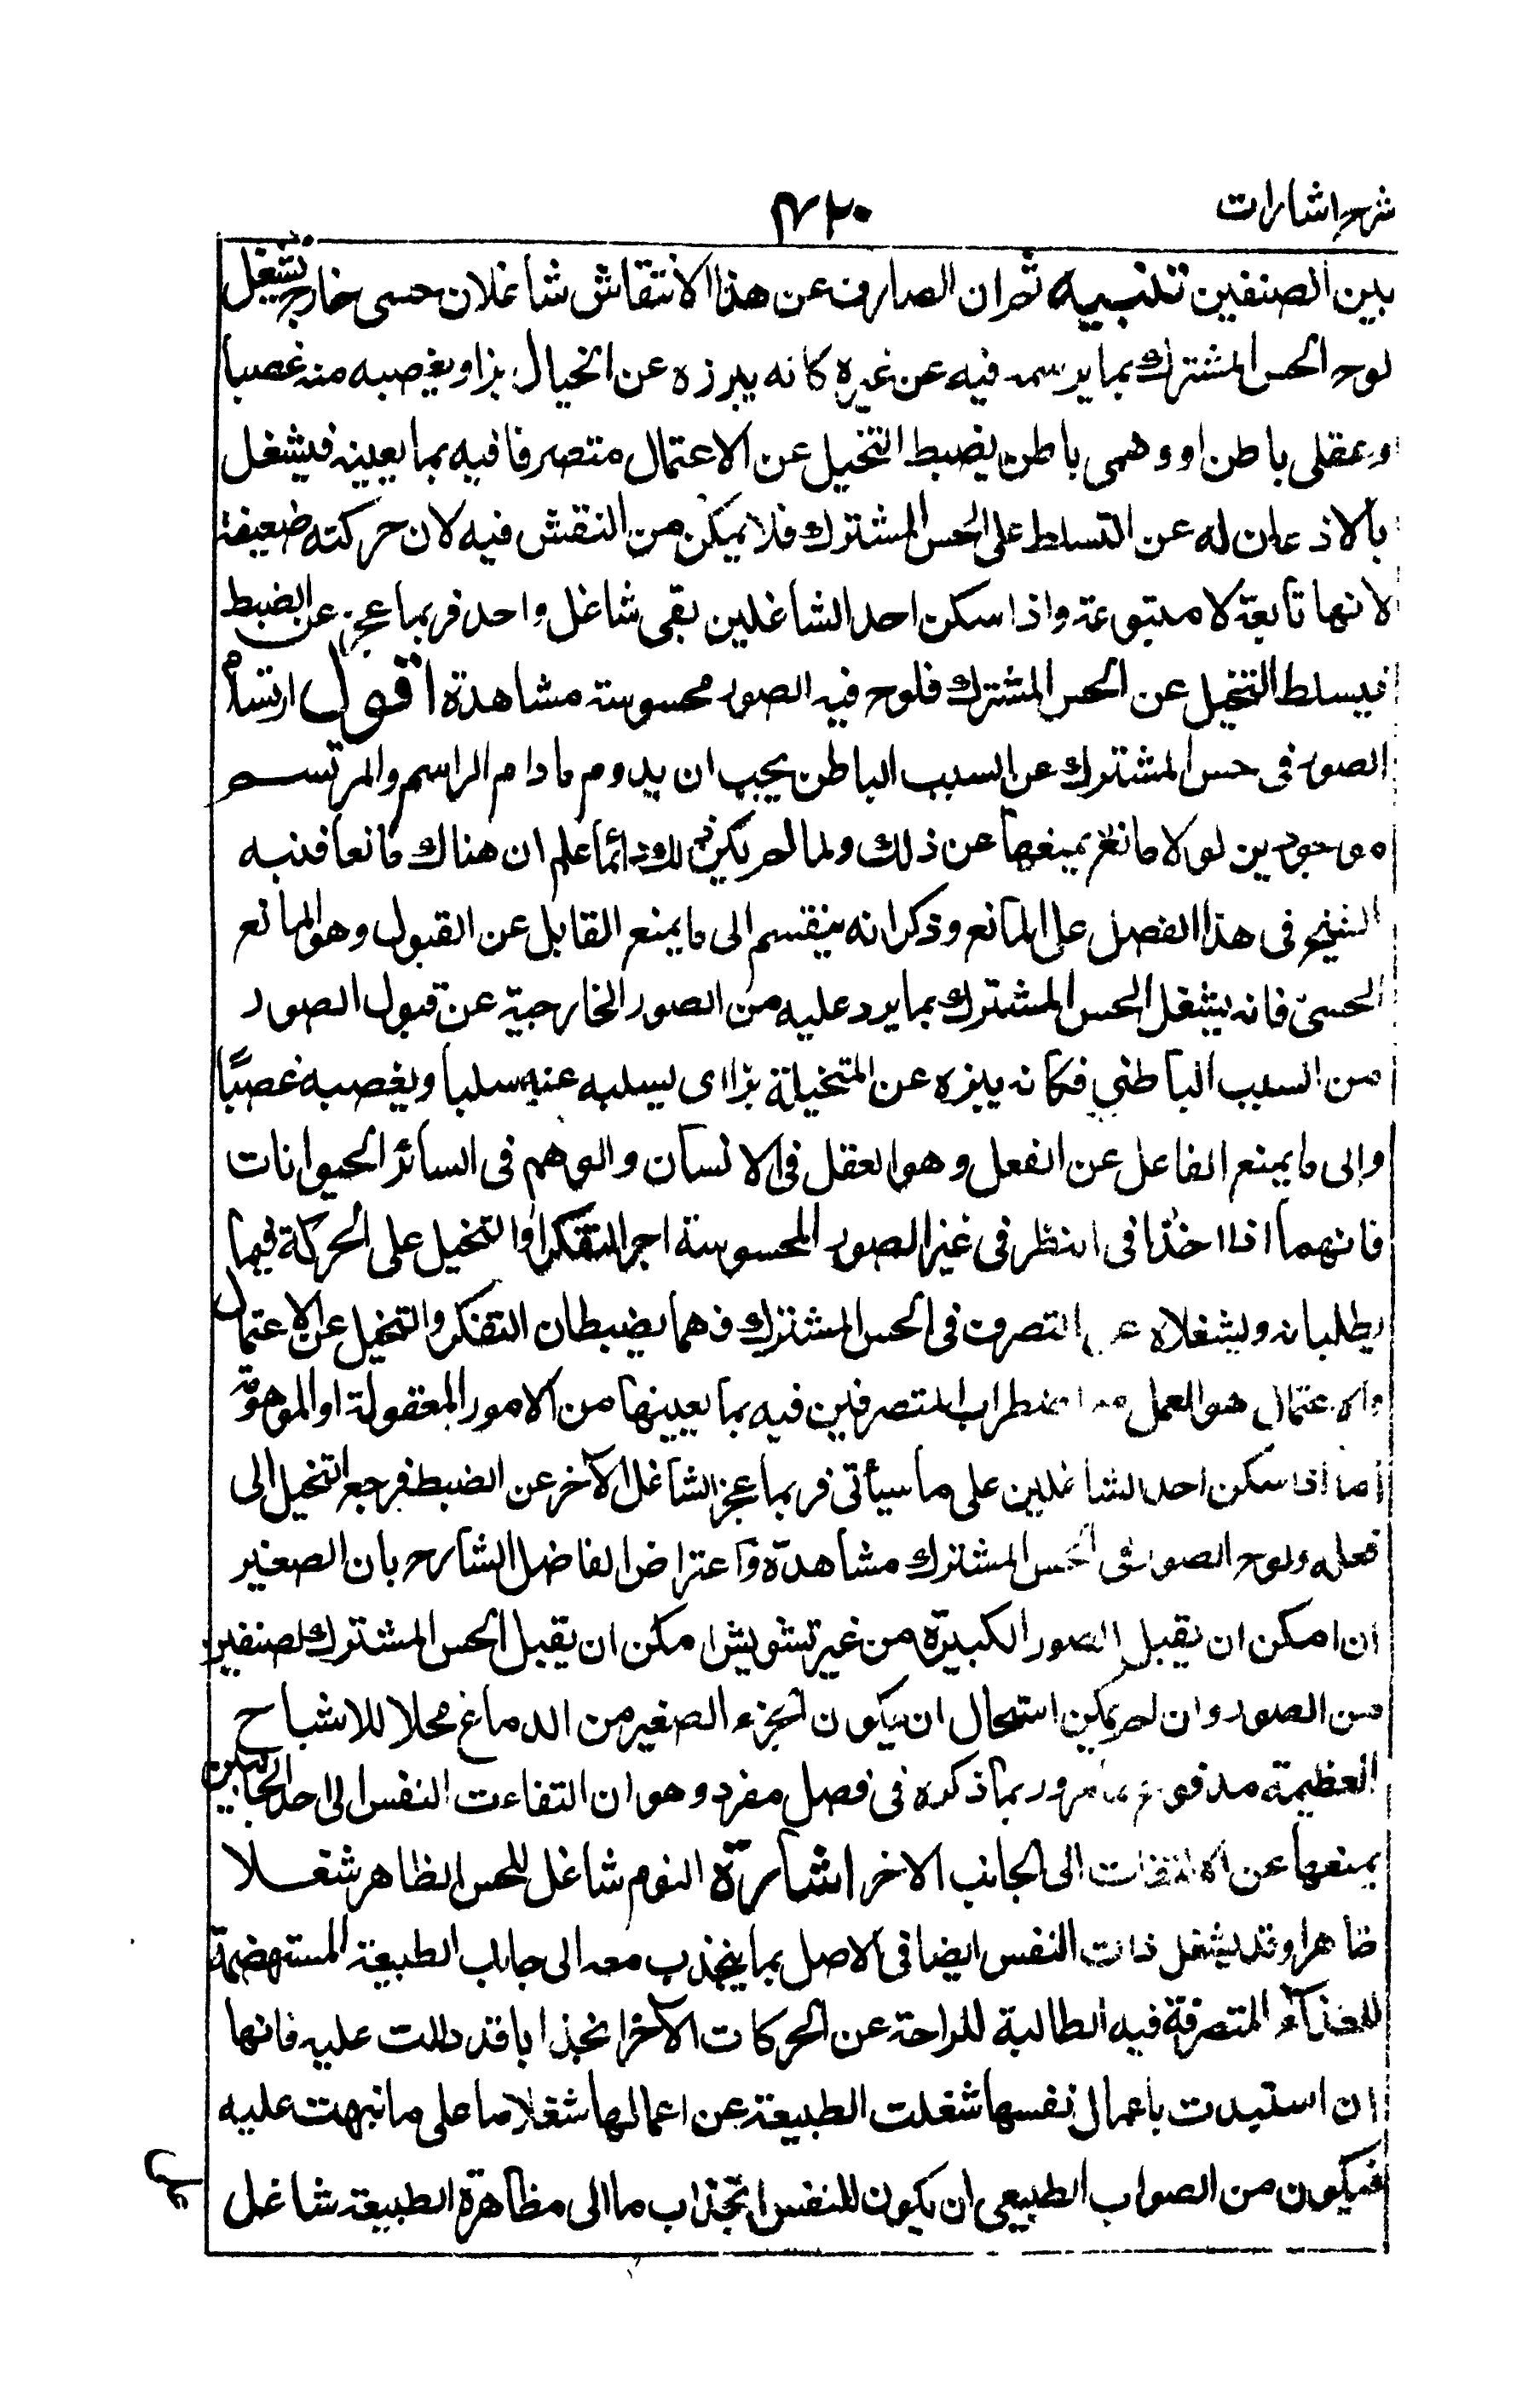 شرح اشارات
٤٢٠
بين الصنفين تنبيه ثم ان الصارف عن هذا الانتقاش شاغلان حسى خارج يشغل
لوح الحس المشترك بما يرسمه فيه عن غيره كانه يبرزه عن الخيال بزا و يغصبه منه غصبا
و عقلى باطن او وهمى باطن يضبط التخيل عن الاعتمال متصرفا فيه بما يعينه فيشغل
بالاذعان له عن التسلط على الحس المشترك فلا يمكن من النقش فيه لان حركته ضعيفة
لانها تابعة لا متبوعة واذا سكن احد الشاغلين بقى شاغل واحد فربما عجز عن الضبط
فيسلط التخيل عن الحس المشترك فلوح فيه الصور محسوسة مشاهدة اقول ارتسام
الصور فى حس المشترك عن السبب الباطن يجب ان يدوم ما دام الراسم والمرتسم
موجودين لولا مانع يمنعها عن ذلك ولما لم يكن ذلك دائما علم ان هناك مانعا فنبه
الشيخ فى هذا الفصل على المانع وذكر انه ينقسم الى ما يمنع القابل عن القبول وهو المانع
الحسىّ فانه يشغل الحس المشترك بما يرد عليه من الصور الخارجية عن قبول الصور
من السبب الباطنى فكانه يبزه عن المتخيلة بزا اى يسلبه عنه سلبا ويغصبه غصبًا
والى ما يمنع الفاعل عن الفعل وهو العقل فى الانسان والوهم فى السائر الحيوانات
فانهما اذا اخذا فى النظر فى غير الصور المحسوسة اجبرا التفكر او التخيل على الحركة فيما
يطلبانه ويشغلاه عن التصرف فى الحس المشترك فهما يضبطان التفكر والتخيل عن الاعتمال
والاعتمال هو العمل مع اضطراب المتصرفين فيه بما يعينها من الامور المعقولة او الموهومة
اما اذا سكن احد الشاغلين على ما سيأتى فربما عجز الشاغل الآخر عن الضبط فرجع التخيل الى
فعله ولوح الصور فى الحس المشترك مشاهدة واعتراض الفاضل الشارح بان الصغير
ان امكن ان يقبل الصور الكبيرة من غير تشويش امكن ان يقبل الحس المشترك لصنفين
من الصور وان لم يمكن استحال ان يكون الجزء الصغير من الدماغ محلا للاشباح
العظيمة مدفوع بما ذكره فى فصل مفرد وهو ان التفاءت النفس الى احد الجانبين
يمنعها عن الالتفات الى الجانب الاخر اشارة النوم شاغل للحس الظاهر شغلا
ظاهرا وقد يشغل ذات النفس ايضا فى الاصل بما ينجذب معه الى جانب الطبيعة المستهضمة
للغذاء المتصرفة فيه الطالبة للراحة عن الحركات الآخر انجذابا قد دللت عليه فانها
ان استبدت باعمال نفسها شغلت الطبيعة عن اعمالها شغلا ما على ما نبهت عليه
فيكون من الصواب الطبيعى ان يكون للنفس انجذاب ما الى مظاهرة الطبيعة شاغل